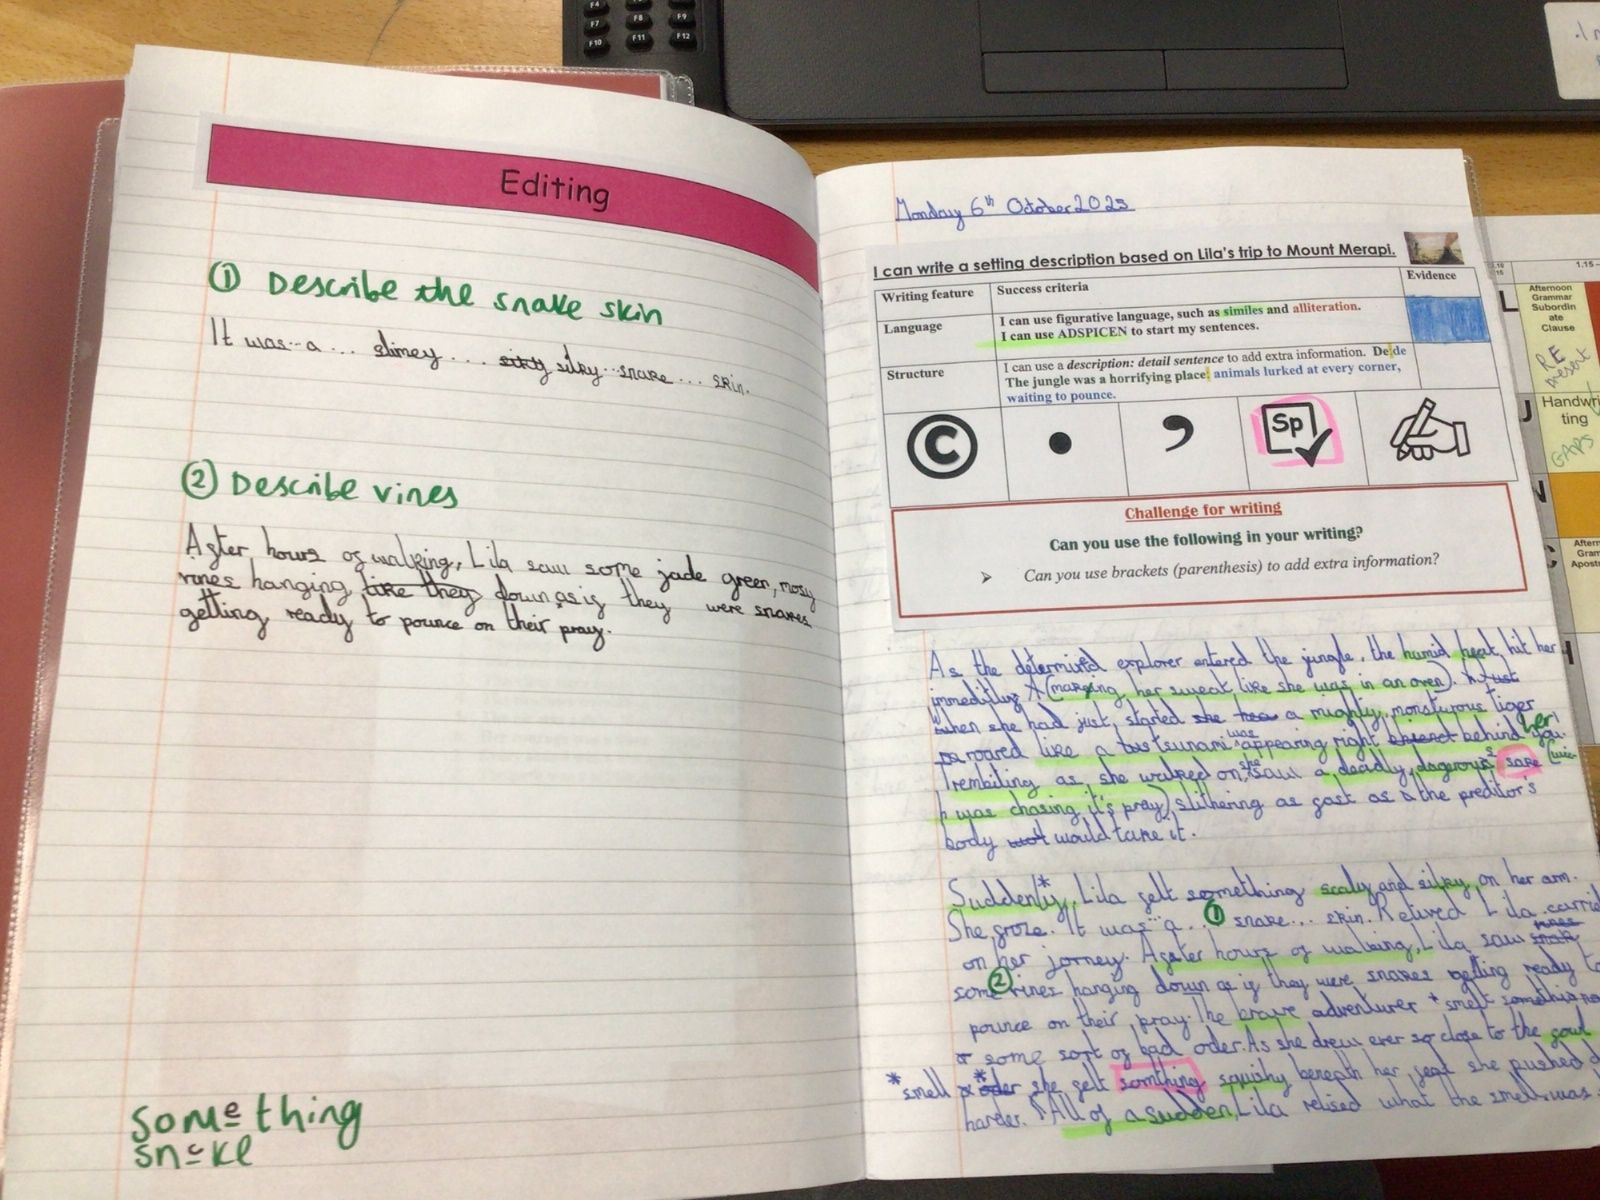 F4
F7 F8 F9
F10 F11 F12
Editing
① Describe the snake skin
It was...a... slimey... silky...snake... skin.
② Describe vines
After hours of walking, Lila saw some jade green, mosy
vines hanging like they down as if they were snakes
getting ready to pounce on their pray.
something
snake
Monday 6th October 2025
I can write a setting description based on Lila's trip to Mount Merapi.
Writing feature Success criteria Evidence
Language I can use figurative language, such as similes and alliteration.
I can use ADSPICEN to start my sentences.
Structure I can use a description: detail sentence to add extra information. De:de
The jungle was a horrifying place: animals lurked at every corner,
waiting to pounce.
© • , Sp
Challenge for writing
Can you use the following in your writing?
➢ Can you use brackets (parenthesis) to add extra information?
As the determined explorer entered the jungle, the humid heat hit her
(making her sweat like she was in an oven).
When she had just started she a mighty, monsturous tiger
roared like a tsunami was appearing right behind her
Trembiling as she walked on, she saw a deadly, dagerous sake (wic-
h was chasing it's pray) slithering as fast as the preditor's
body would take it.
Suddenly*, Lila felt something scaly and silky on her arm.
She froze. It was...a... ① snake... skin. Relived Lila carrid
on her jorney. After hours of walking, Lila saw
some ② vines hanging down as if they were snakes getting ready to
pounce on their pray. The brave adventurer * smelt something
some sort of bad oder. As she drew ever so close to the foul
*smell she felt somthing squishy beneph her feat she pushed
harder. All of a sudden, Lila relised what the smell was
1.15
Afternoon
Grammar
Subordin
ate
Clause
RE
Handwri
ting
GAPS